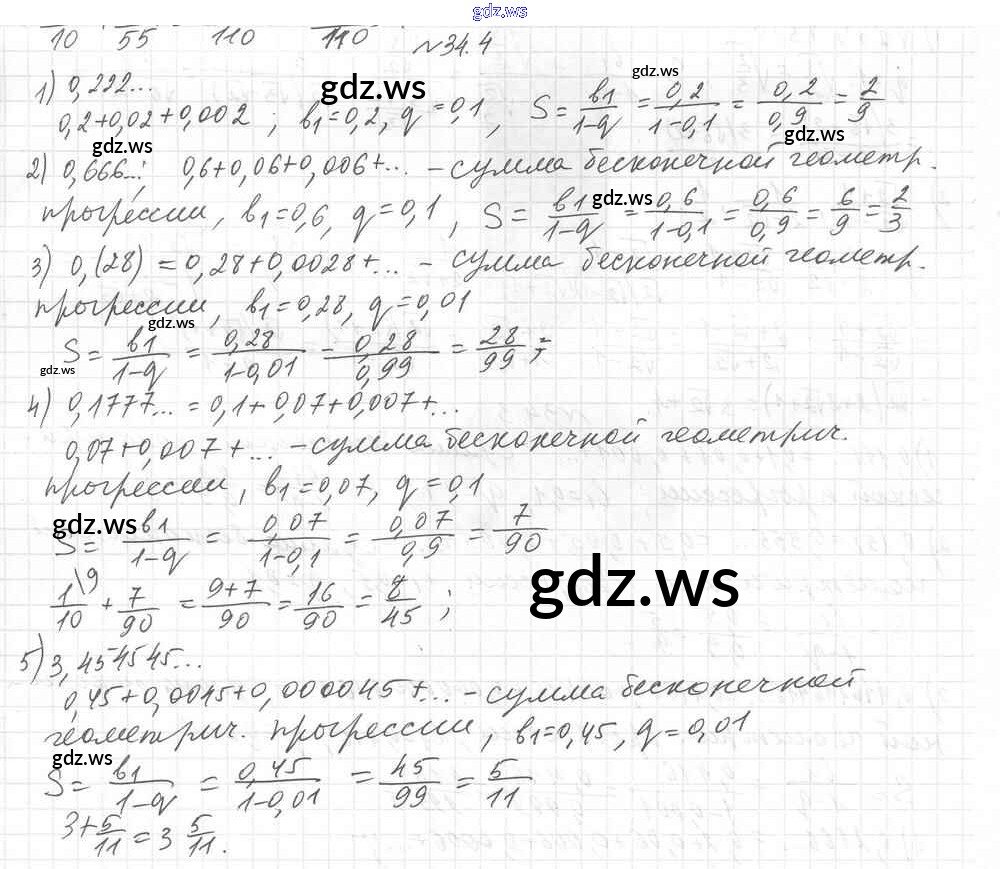 gdz.ws
10 55 110 110 №34.4
1) 0,222...
0,2+0,02+0,002 ; b1=0,2, q=0,1 , S= b1/1-q = 0,2/1-0,1 = 0,2/0,9 = 2/9
2) 0,666...; 0,6+0,06+0,006+... – сумма бесконечной геометр.
прогрессии, b1=0,6, q=0,1 , S= b1/1-q = 0,6/1-0,1 = 0,6/0,9 = 6/9 = 2/3
3) 0,(28) = 0,28+0,0028+... – сумма бесконечной геометр.
прогрессии, b1=0,28, q=0,01
S= b1/1-q = 0,28/1-0,01 – 0,28/0,99 = 28/99 ;
4) 0,1777... = 0,1+0,07+0,007+...
0,07+0,007+... – сумма бесконечной геометрич.
прогрессии, b1=0,07, q=0,1
S= b1/1-q = 0,07/1-0,1 = 0,07/0,9 = 7/90
1/10 \9 + 7/90 = 9+7/90 = 16/90 = 8/45 ;
5) 3,454545...
0,45+0,0045+0,000045+... – сумма бесконечной
геометрич. прогрессии, b1=0,45, q=0,01
S= b1/1-q = 0,45/1-0,01 = 45/99 = 5/11
3+5/11 = 3 5/11.
gdz.ws
gdz.ws
gdz.ws
gdz.ws
gdz.ws
gdz.ws
gdz.ws
gdz.ws
gdz.ws
gdz.ws